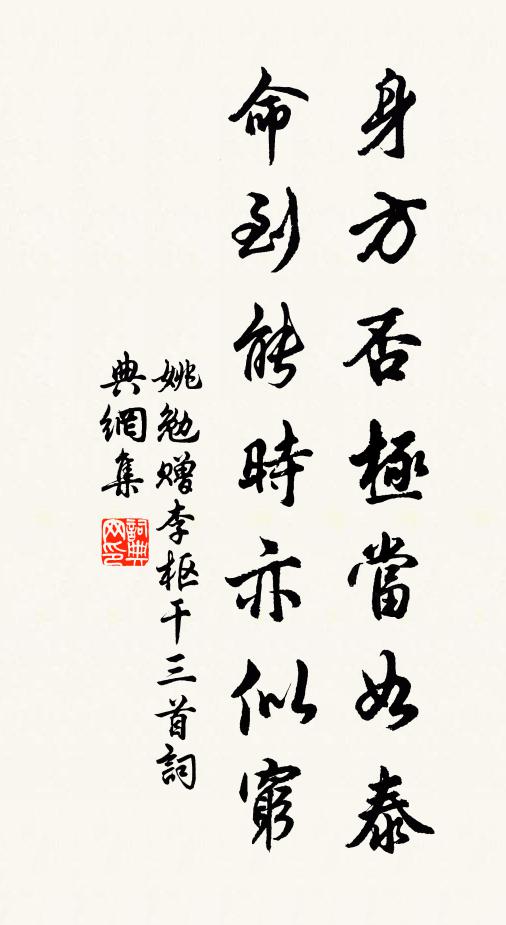 身方否極當如泰
命到能時亦似窮
姚勉贈李枢干三首詞
典網集
詞典
网印